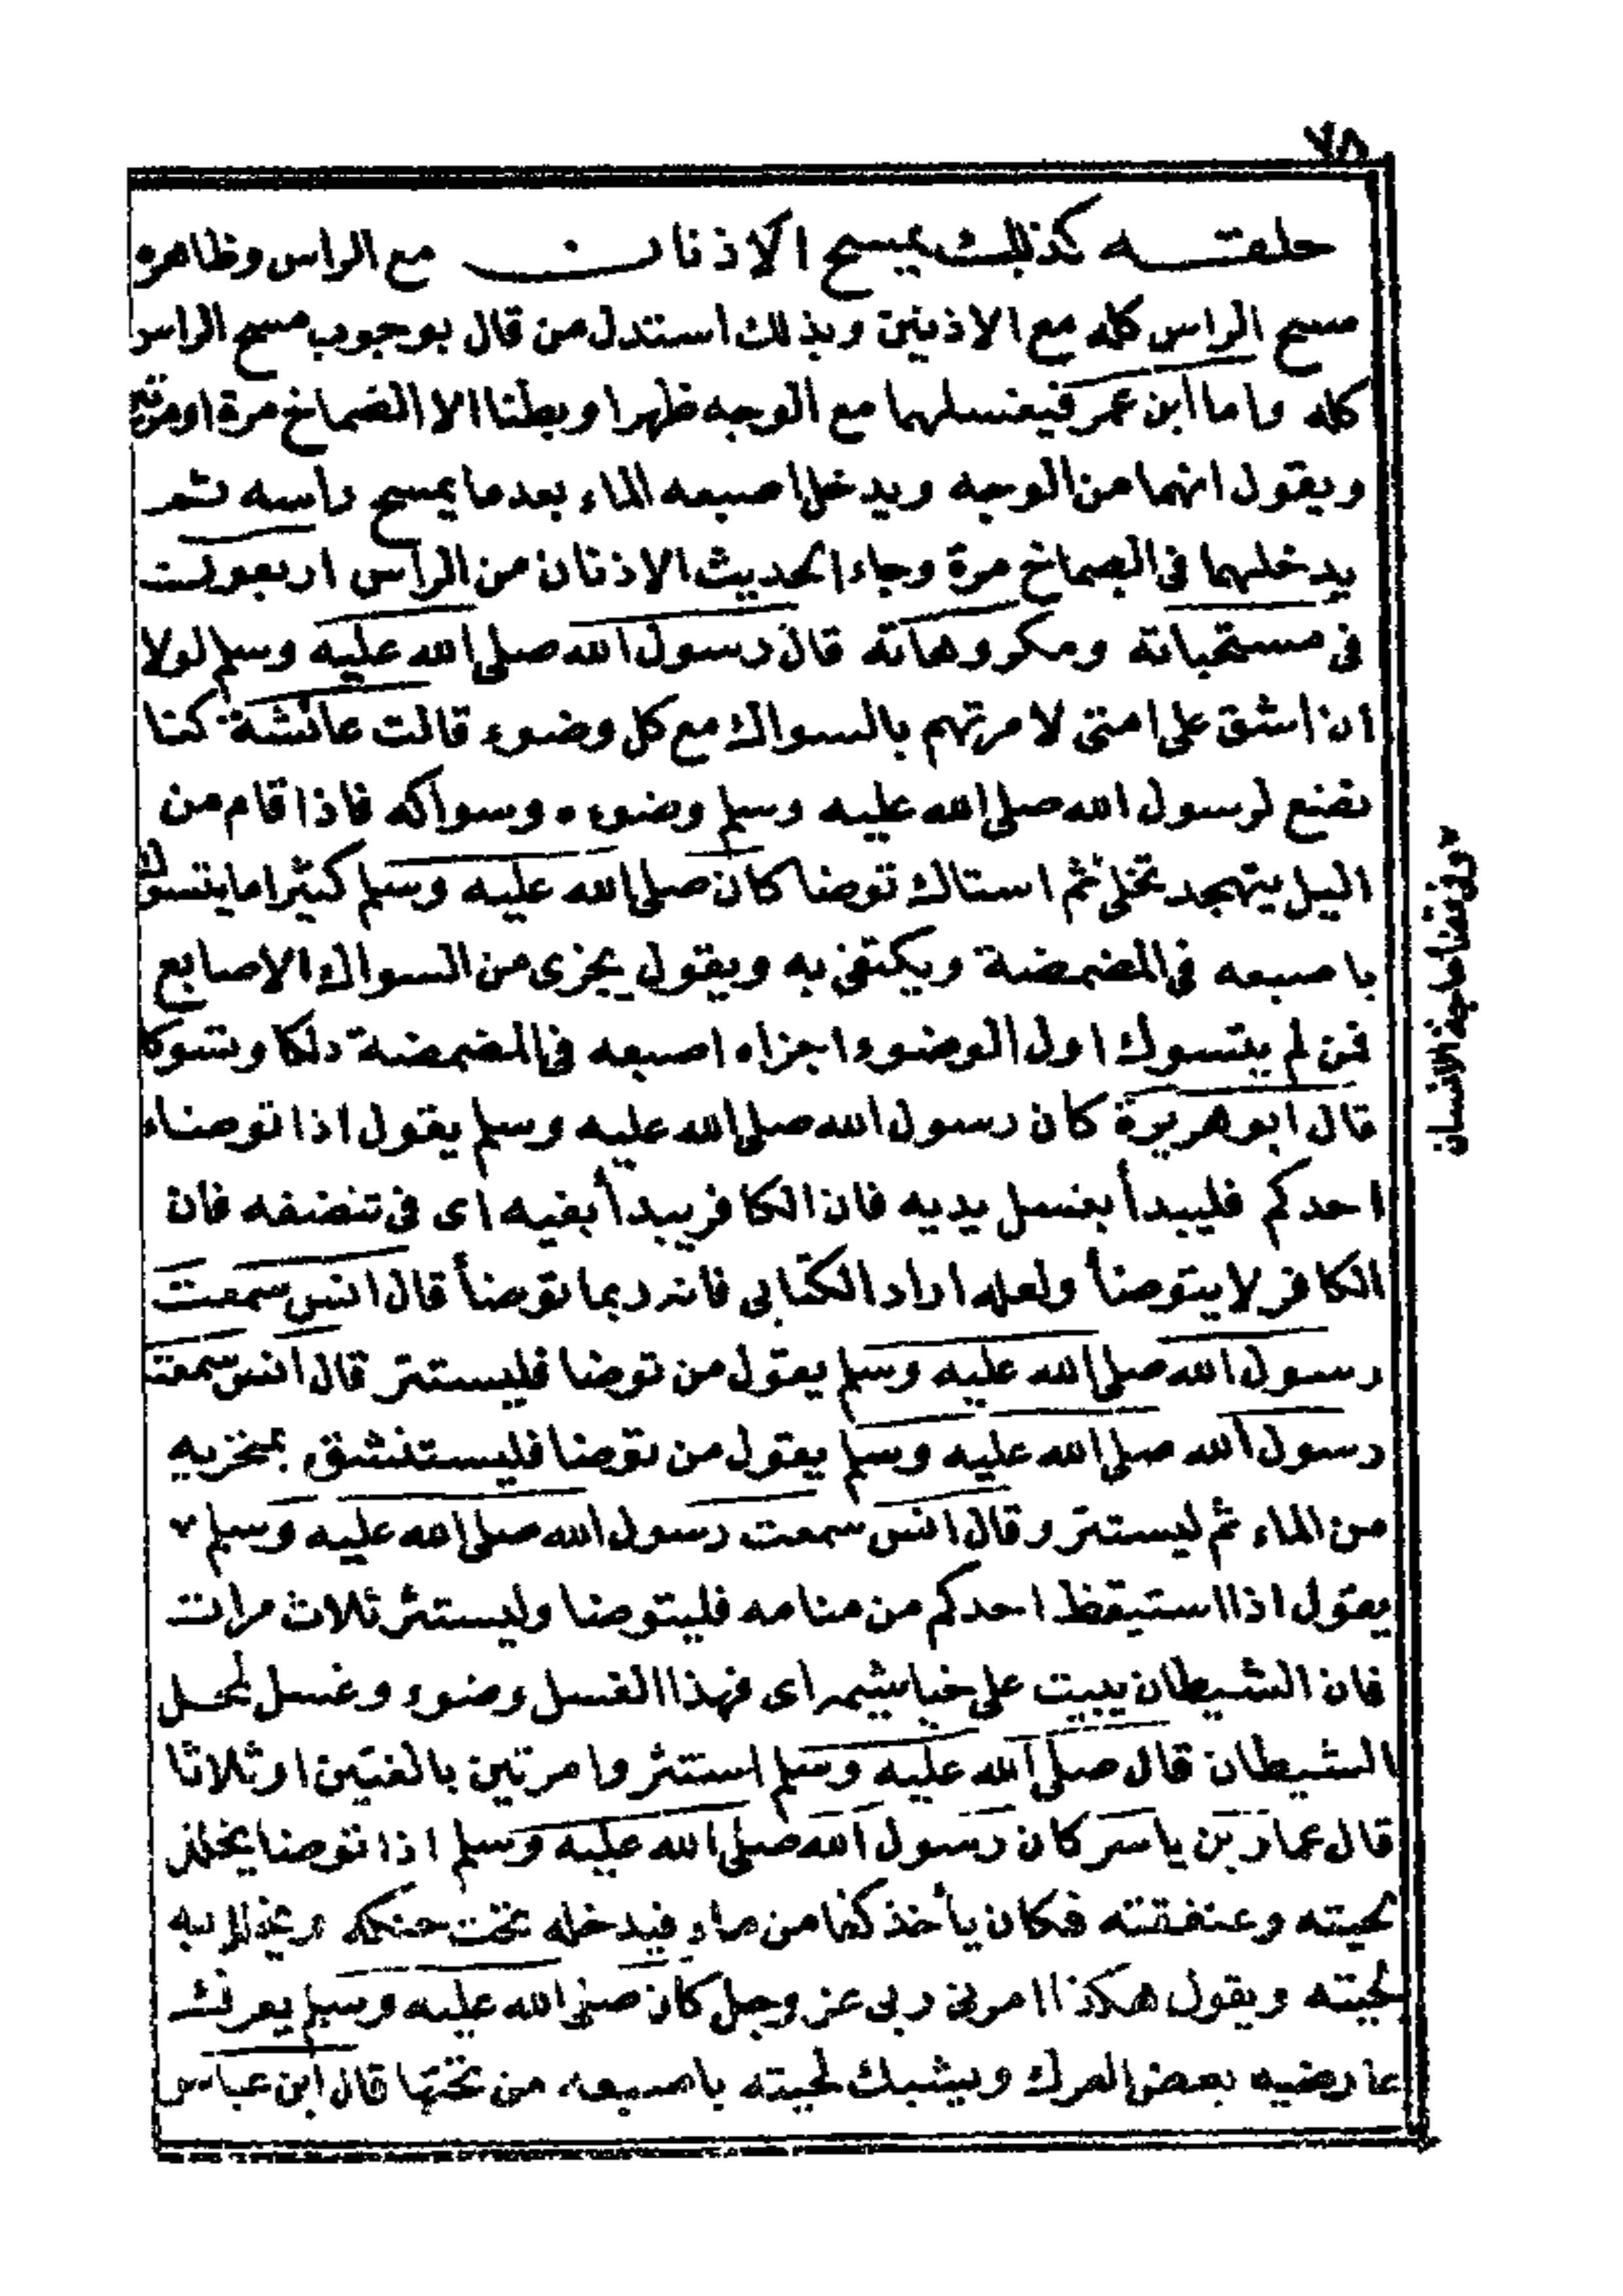 ٧٨
حلقته كذلك يمسح الاذنان مع الراس وظاهره
مسح الراس كله مع الاذنين وبذلك استدل من قال بوجوب مسح الراس
كله واما ابن عمر فيغسلهما مع الوجه ظهرا وبطنا الا الصماخ مرة او مرتين
ويقول انهما من الوجه ويدخل اصبعه الماء بعد ما يمسح راسه ثم
يدخلهما فى الصماخ مرة وجاء الحديث الاذنان من الراس
فى مستحباته ومكروهاته قال رسول الله صلى الله عليه وسلم لولا
ان اشق على امتى لامرتهم بالسواك مع كل وضوء قالت عائشة كنا
نضع لرسول الله صلى الله عليه وسلم وضوءه وسواكه فاذا قام من
اليل يتهجد تخلى ثم استاك توضا كان صلى الله عليه وسلم كثيرا ما يتسوك
باصبعه فى المضمضة ويكتفى به ويقول يجزى من السواك الاصابع
فمن لم يتسوك اول الوضوء اجزاه اصبعه فى المضمضة دلكا وتسوكا
قال ابو هريرة كان رسول الله صلى الله عليه وسلم يقول اذا توضاء
احدكم فليبدأ بغسل يديه فان الكافر يبدأ بفيه اى فى تنضفه فان
الكافر لا يتوضأ ولعله اراد الكتابى فانه ربما توضأ قال انس سمعت
رسول الله صلى الله عليه وسلم يقول من توضا فليستتر قال انس سمعت
رسول الله صلى الله عليه وسلم يقول من توضا فليستنشق بمنخريه
من الماء ثم ليستتر وقال انس سمعت رسول الله صلى الله عليه وسلم
يقول اذا استيقظ احدكم من منامه فليتوضا وليستنثر ثلاث مرات
فان الشيطان يبيت على خياشيمه اى فهذا الغسل وضوء وغسل لمحل
الشيطان قال صلى الله عليه وسلم استنثروا مرتين بالغتين او ثلاثا
قال عمار بن ياسر كان رسول الله صلى الله عليه وسلم اذا توضا يخلل
لحيته وعنفقته فكان يأخذ كفا من ماء فيدخله تحت حنكه ويخلل به
لحيته ويقول هكذا امرنى ربى عز وجل كان صلى الله عليه وسلم يعرك
عارضيه بعض العرك ويشبك لحيته باصبعه من تحتها قال ابن عباس
الانسان